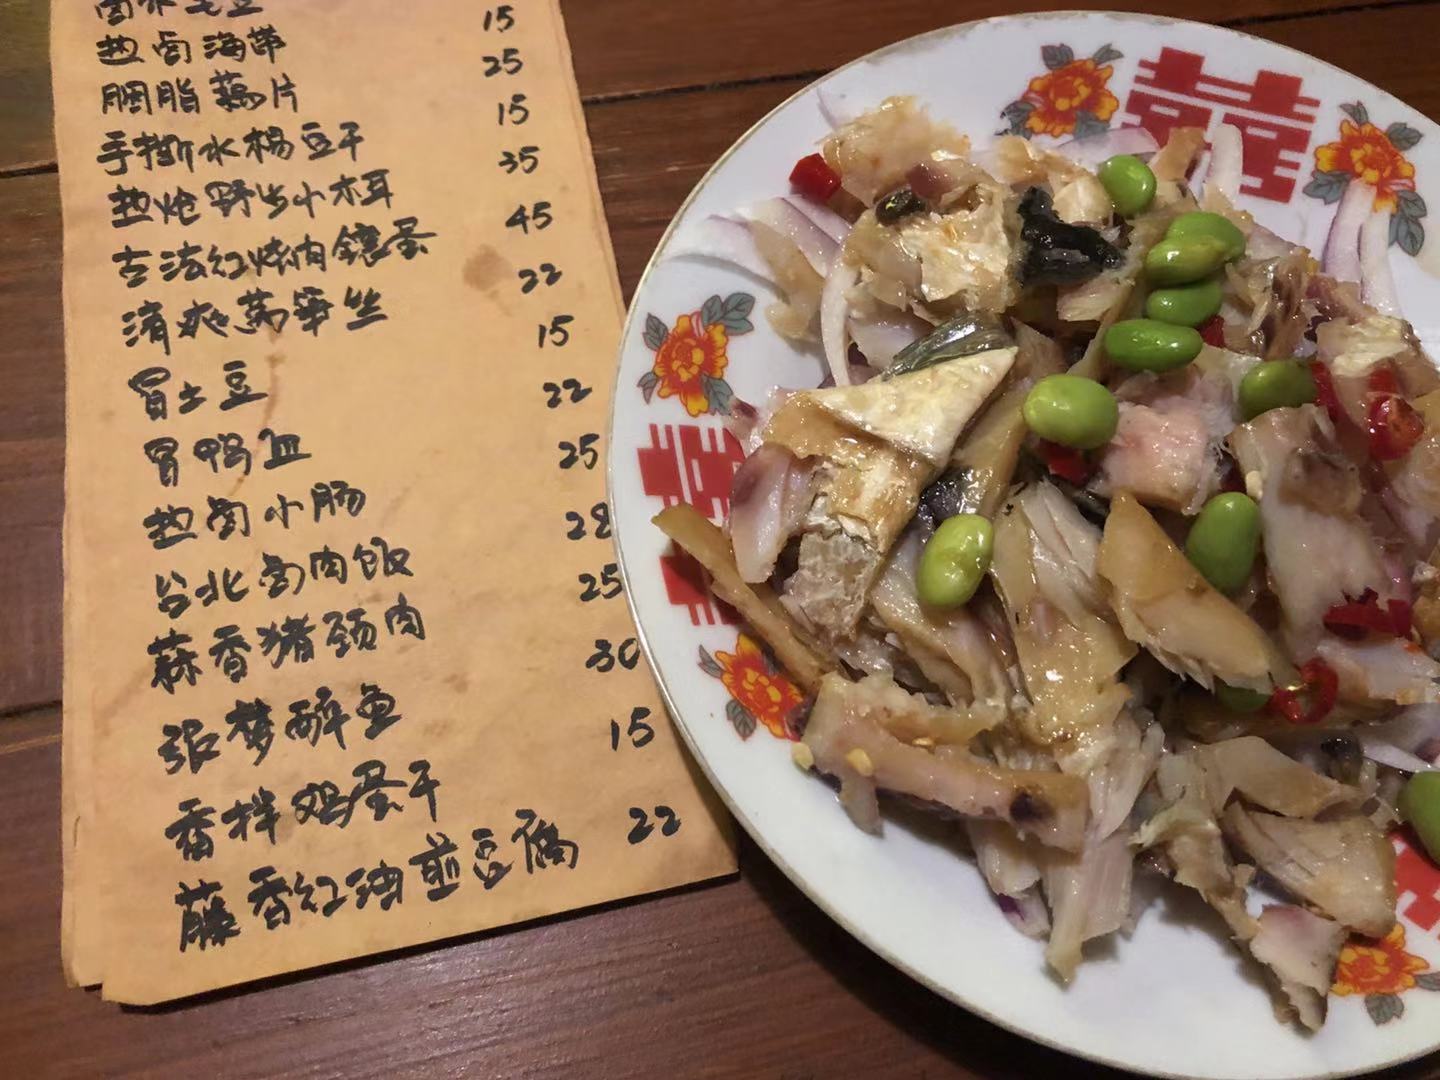 卤水毛豆
热卤海带 15
胭脂藕片 25
手撕水杨豆干 15
热炝野生小木耳 35
古法红烧肉镶蛋 45
清爽莴笋丝 22
冒土豆 15
冒鸭血 22
热卤小肠 25
台北卤肉饭 28
蒜香猪颈肉 25
张梦醉鱼 30
香拌鸡蛋干 15
藤香红油煎豆腐 22
囍
囍